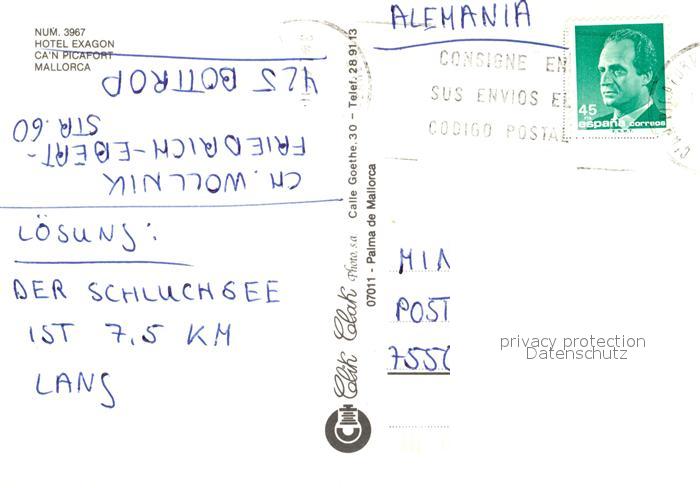 NUM. 3967
HOTEL EXAGON
CA'N PICAFORT
MALLORCA
CH. WOLLNIK
FRIEDRICH-EBERT-
STR. 60
425 BOTTROP
LÖSUNG:
DER SCHLUCHSEE
IST 7,5 KM
LANG
Clik Clak Photo, s.a. Calle Goethe, 30 – Telef. 28 91 13
07011 - Palma de Mallorca
ALEMANIA
CONSIGNE EN
SUS ENVIOS EL
CODIGO POSTAL
45
españa correos
POST
privacy protection
Datenschutz